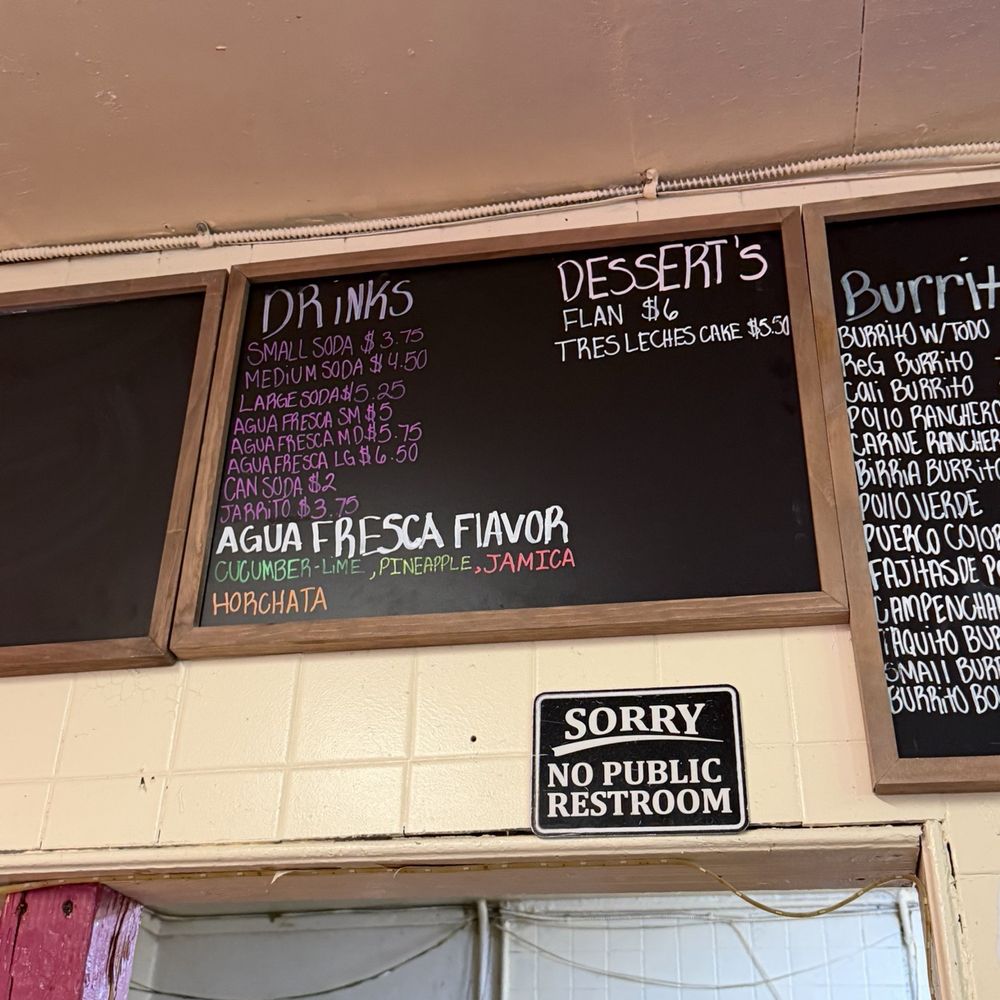 DRiNKS
SMALL SODA $3.75
MEDiUM SODA $4.50
LARGE SODA $5.25
AGUA FRESCA SM $5
AGUA FRESCA MD $5.75
AGUA FRESCA LG $6.50
CAN SODA $2
JARRITO $3.75
AGUA FRESCA FlAVOR
CUCUMBER-LiME, PINEAPPLE, JAMICA
HORCHATA
DESSERT'S
FLAN $6
TRES LECHES CAKE $5.50
Burrit
BURRITO W/TODO
ReG BURRiTO
Cali BURRiTO
POllO RANCHERO
CARNE RANCHER
BiRRiA BURRiTO
POllO VERDE
PUERCO COlOR
FAJiTAS DE PO
CAMPENCHAN
TAQUiTO BUR
SMAll BURR
BURRiTO BO
SORRY
NO PUBLIC
RESTROOM